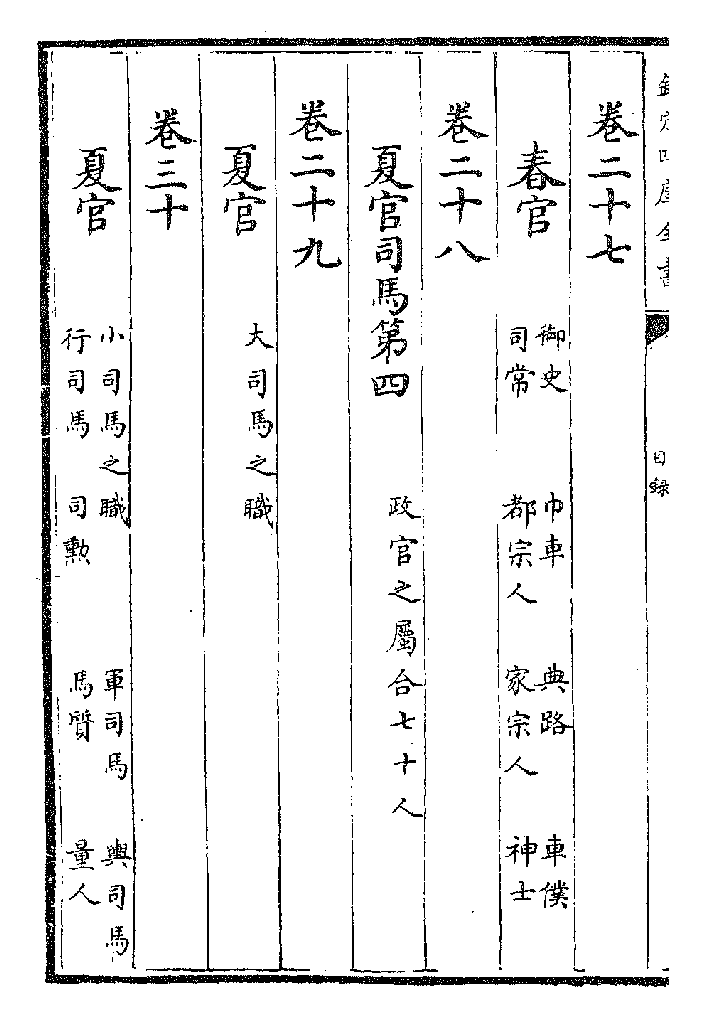 欽定四庫全書
目録
卷二十七
春官
御史 巾車 典路 車僕
司常 都宗人 家宗人 神士
卷二十八
夏官司馬第四
政官之屬合七十人
卷二十九
夏官
大司馬之職
卷三十
夏官
小司馬之職 軍司馬 輿司馬
行司馬 司勲 馬質 量人